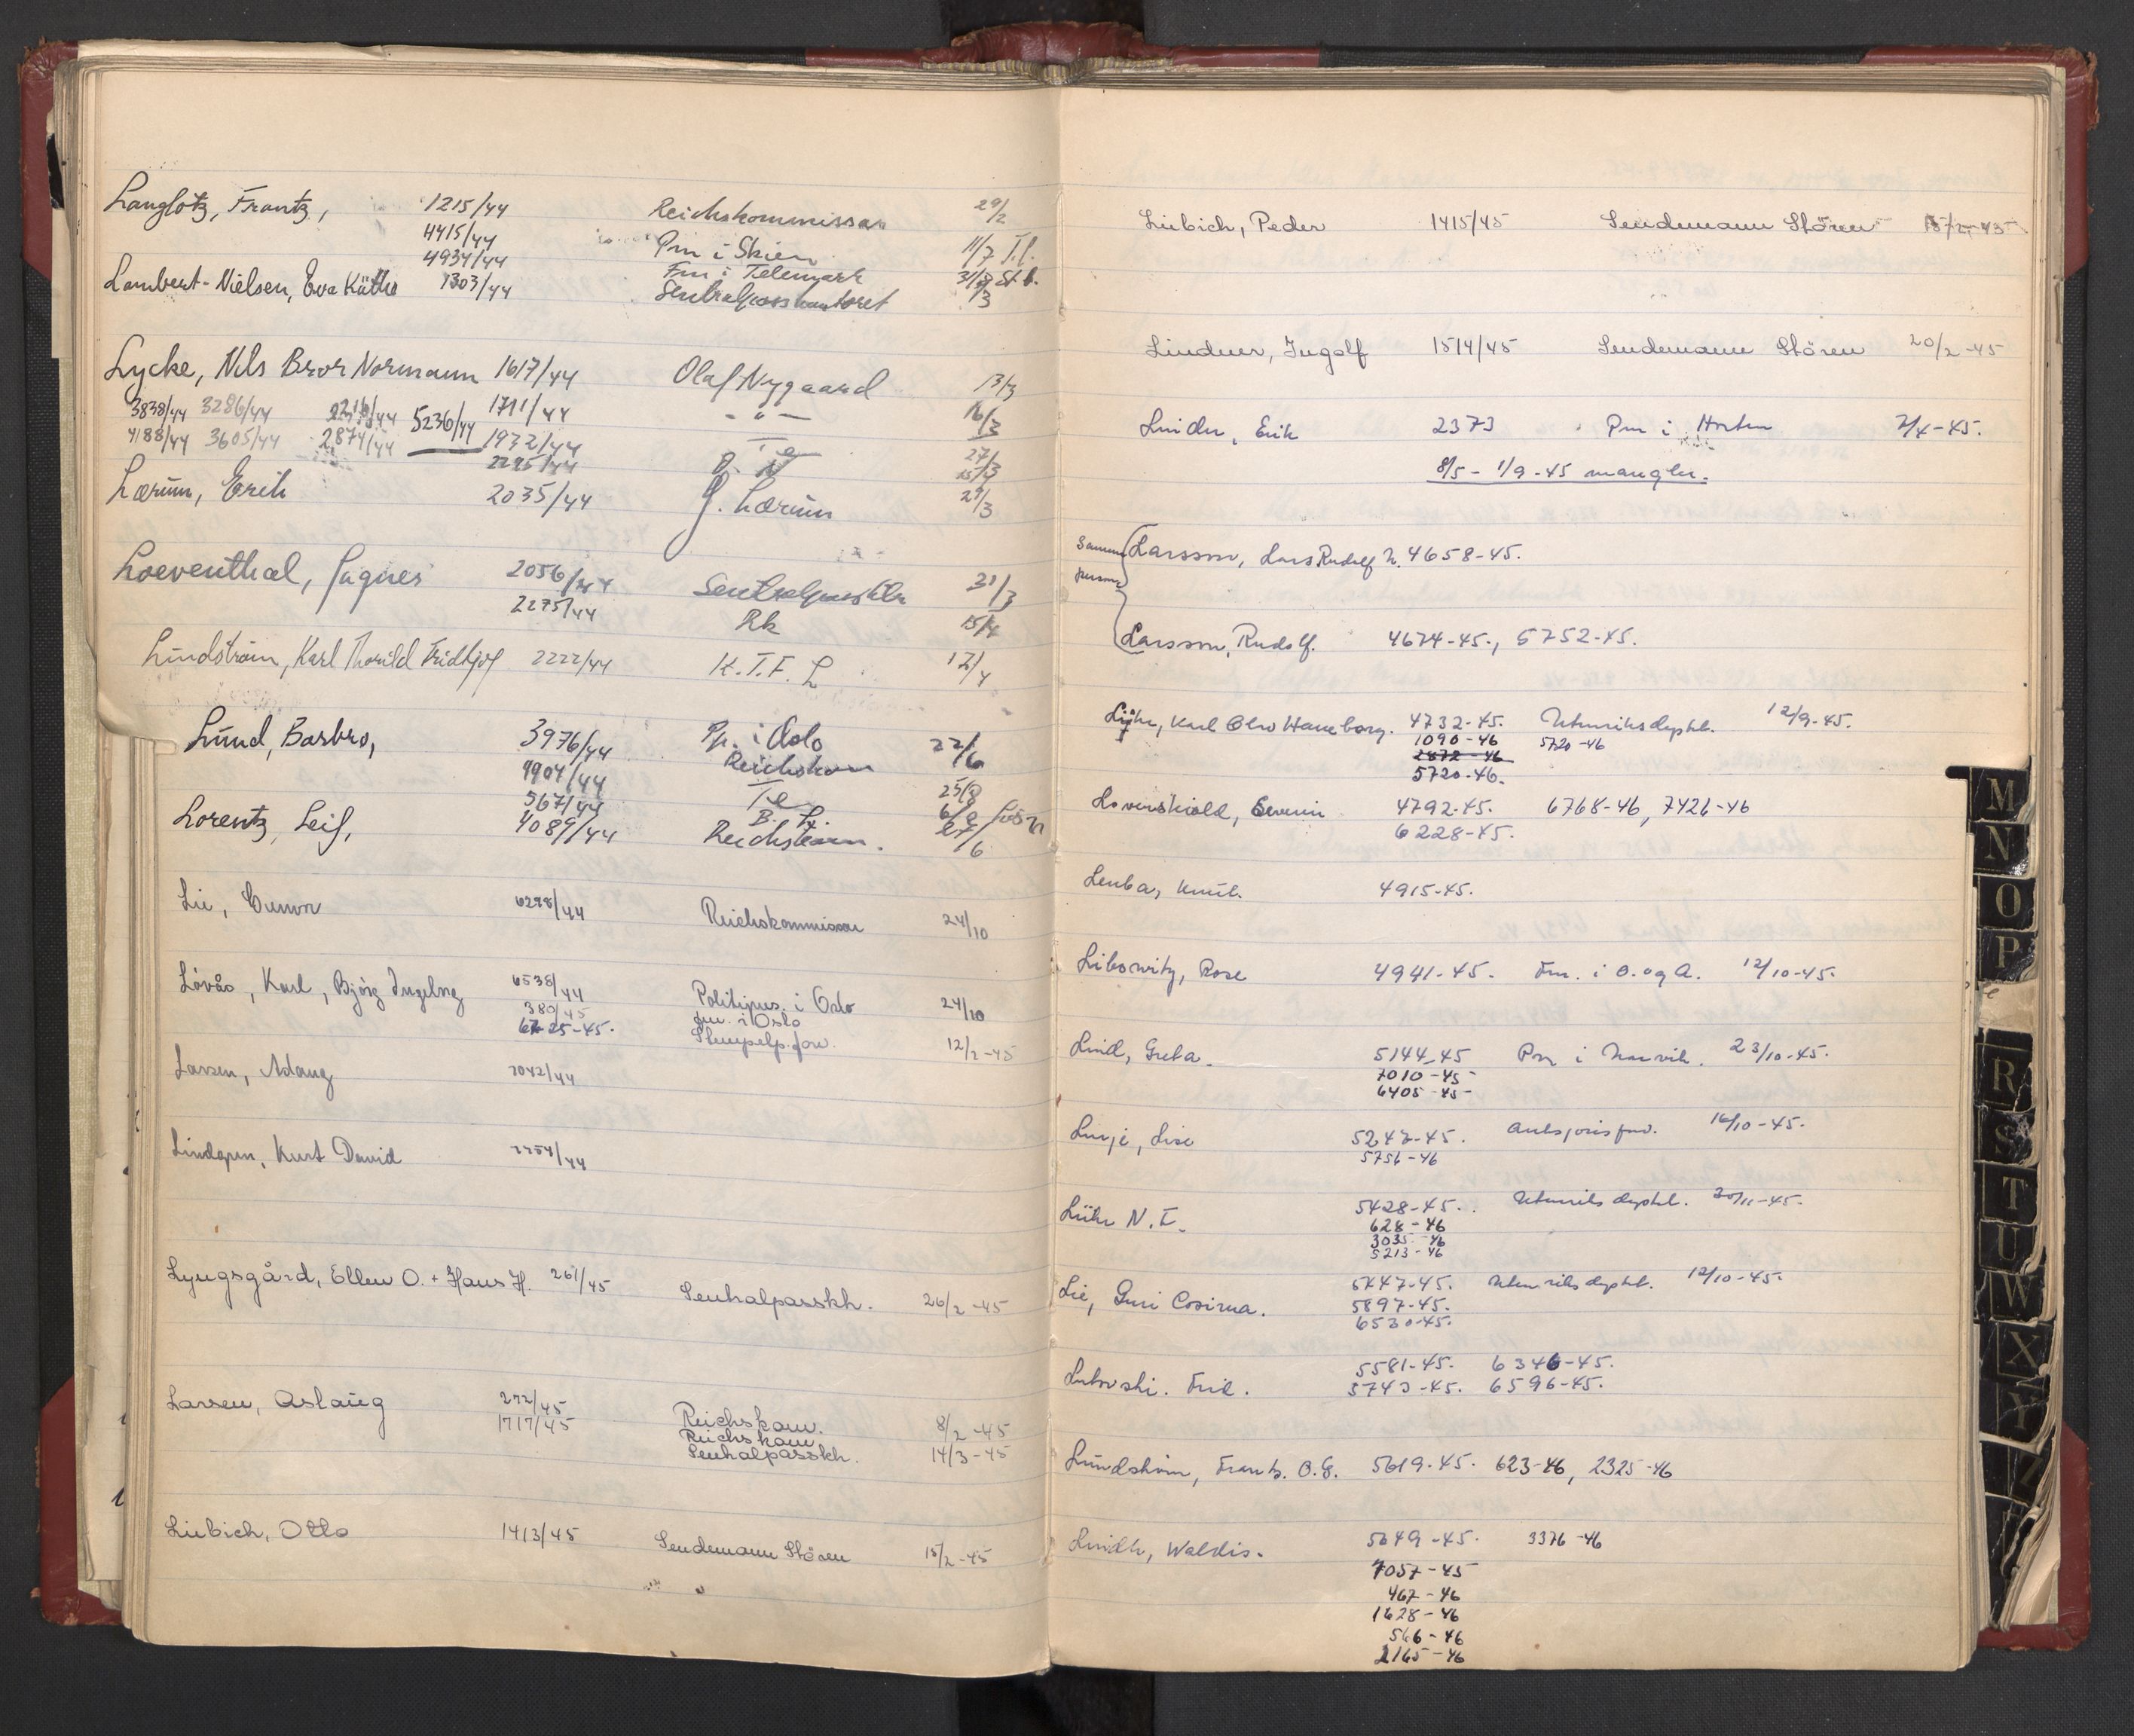 Langlotz, Frantz, 1215/44 Reichskommissar 29/2
4415/44 Pm i Skien 11/7 T.l.
4934/44 Fm i Telemark
Lambert-Nielsen, Eva Käthe 1303/44 Sentralpasskontoret /3
Lycke, Nils Bror Normann 1617/44 Olaf Nygaard 13/3
3838/44 3286/44 5236/44 1711/44 - " - 16/3
4188/44 3605/44 2874/44 1932/44 Te 27/3
2295/44
Lærum, Erik 2035/44 J. Lærum 29/3
Loeventhal, Jagnes 2056/44 31/3
2275/44 Rk 15/4
Lindstrøm, Karl Thorild Fridtjof 2222/44 K.T.F. L 12/4
Lund, Barbro, 3976/44 Pp. i Oslo 22/6
9904/44 Reichskom 25/8
567/44 Te 6/2
Lorentz, Leif, 4089/44 Reichskom. 27/6
Lie, Gunvor 6298/44 Reichskommissar 24/10
Lövås, Karl, Björg Ingebrg 6538/44 Politipres. i Oslo 24/10
380/45 pm. i Oslo
6725-45. Stempelp.forv. 12/2-45
Larsen, Aslaug 7042/44
Lindgren, Kurt David 7254/44
Lyngsgård, Ellen O. + Hans H. 261/45 Sentralpassktr. 26/2-45
Larsen, Aslaug 272/45 Reichskom. 8/2-45
1717/45 Reichskom
Sentralpassktr. 14/3-45
Liebich, Otto 1413/45 Sendemann Stören 15/2-45
Liebich, Peder 1415/45 Sendemann Stören 15/2-45
Lindner, Ingolf 1514/45 Sendemann Stören 20/2-45
Linder, Erik 2373 Pm i Horten 7/4-45.
8/5 - 1/9-45 mangler.
Samme person
Larsson, Lars Rudolf N. 4658-45.
Larsson, Rudolf. 4674-45., 5752-45.
Lühr, Karl Olav Haneborg. 4732-45. Utenriksdeptet. 12/9-45.
1090-46 5720-46
2872-46
5720-46.
Lövenskiold, Severin 4792-45. 6768-46, 7426-46
6228-45.
Lenba, Knut. 4915-45.
Libowitz, Rose 4941-45. Fm. i O. og A. 12/10-45.
Lind, Greta. 5144-45 Pm i Narvik. 23/10-45.
7010-45
6405-45
Linje, Lise 5247-45. 16/10-45.
5756-46
Lühr N.F. 5428-45. Utenriksdeptet. 30/11-45.
628-46
3035-46
5213-46
Lie, Guri Cosima. 5447-45. Utenriksdeptet. 12/10-45.
5897-45.
6530-45.
Lutowski. Emil. 5581-45. 6346-45.
5743-45. 6596-45.
Lundström, Frantz. O.G. 5619-45. 623-46, 2325-46
Lindh, Waldis. 5649-45. 3376-46
7057-45
467-46
1628-46
566-46
2165-46
M
N
O
P
R
S
T
U
W
X
Y
Z